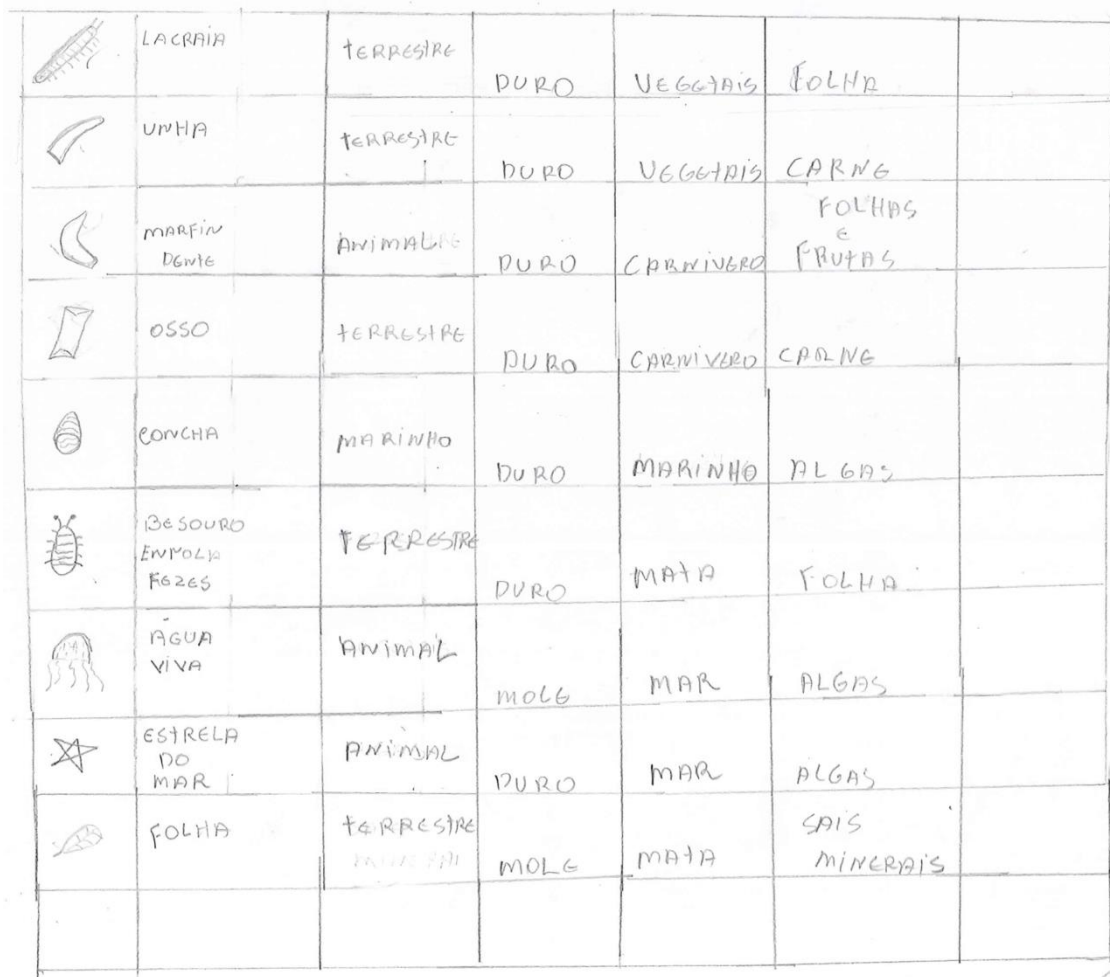 LACRAIA
TERRESTRE
DURO
VEGETAIS
FOLHA
UNHA
TERRESTRE
DURO
VEGETAIS
CARNE
MARFIN
DENTE
ANIMAL
DURO
CARNIVERO
FOLHAS
E
FRUTAS
OSSO
TERRESTRE
DURO
CARNIVERO
CARNE
CONCHA
MARINHO
DURO
MARINHO
ALGAS
BESOURO
ENROLA
FEZES
TERRESTRE
DURO
MATA
FOLHA
ÁGUA
VIVA
ANIMAL
MOLE
MAR
ALGAS
ESTRELA
DO
MAR
ANIMAL
DURO
MAR
ALGAS
FOLHA
TERRESTRE
MOLE
MATA
SAIS
MINERAIS